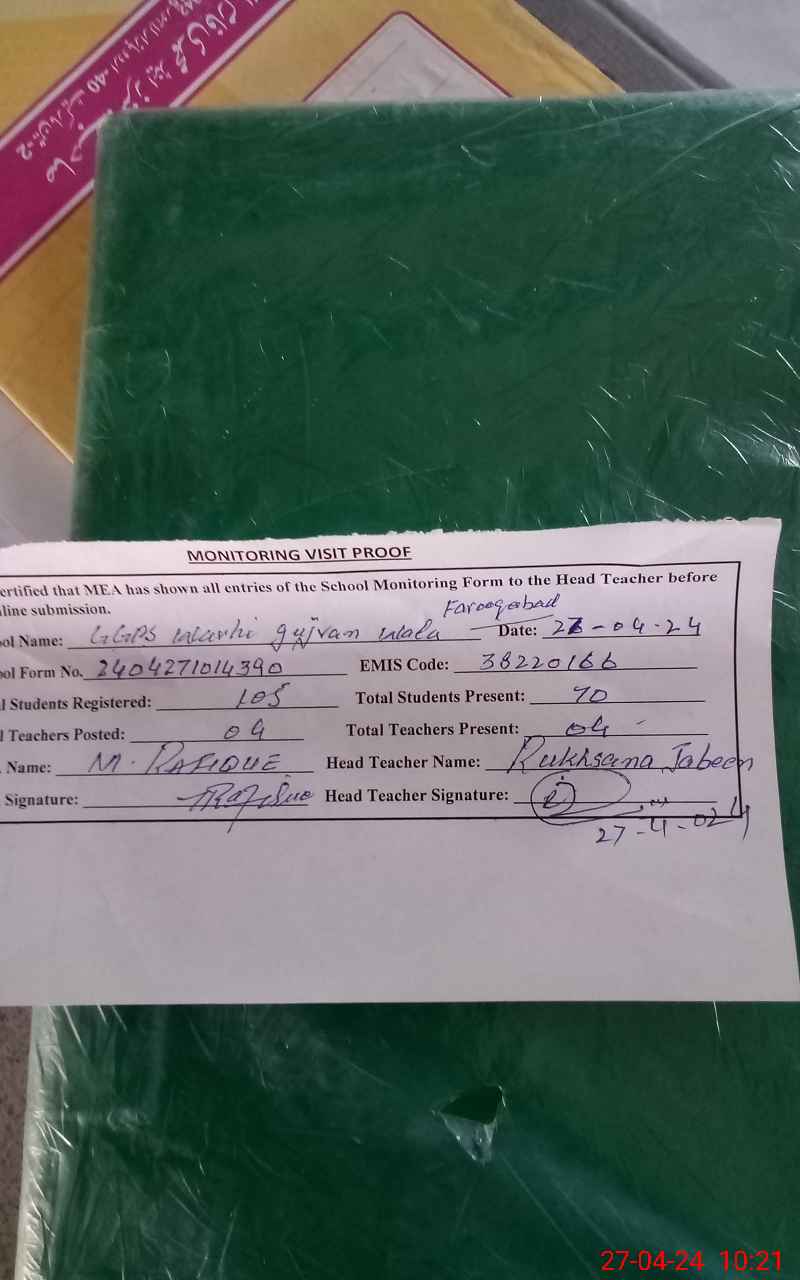 MONITORING VISIT PROOF
ertified that MEA has shown all entries of the School Monitoring Form to the Head Teacher before
line submission.
Farooqabad
ool Name: GGPS Warhi gujran wala Date: 27-04-24
ool Form No. 2404271014390 EMIS Code: 38220166
l Students Registered: 105 Total Students Present: 70
l Teachers Posted: 04 Total Teachers Present: 04
Name: M. RAFIQUE Head Teacher Name: Rukhsana Jabeen
Signature: Head Teacher Signature:
27-4-024
27-04-24 10:21